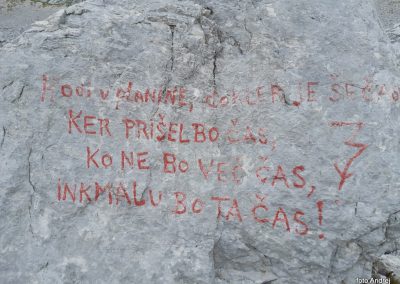 HODI V PLANINE, DOKLER JE ŠE ČAS
KER PRIŠEL BO ČAS,
KO NE BO VEČ ČAS,
IN KMALU BO TA ČAS!
foto Andrej